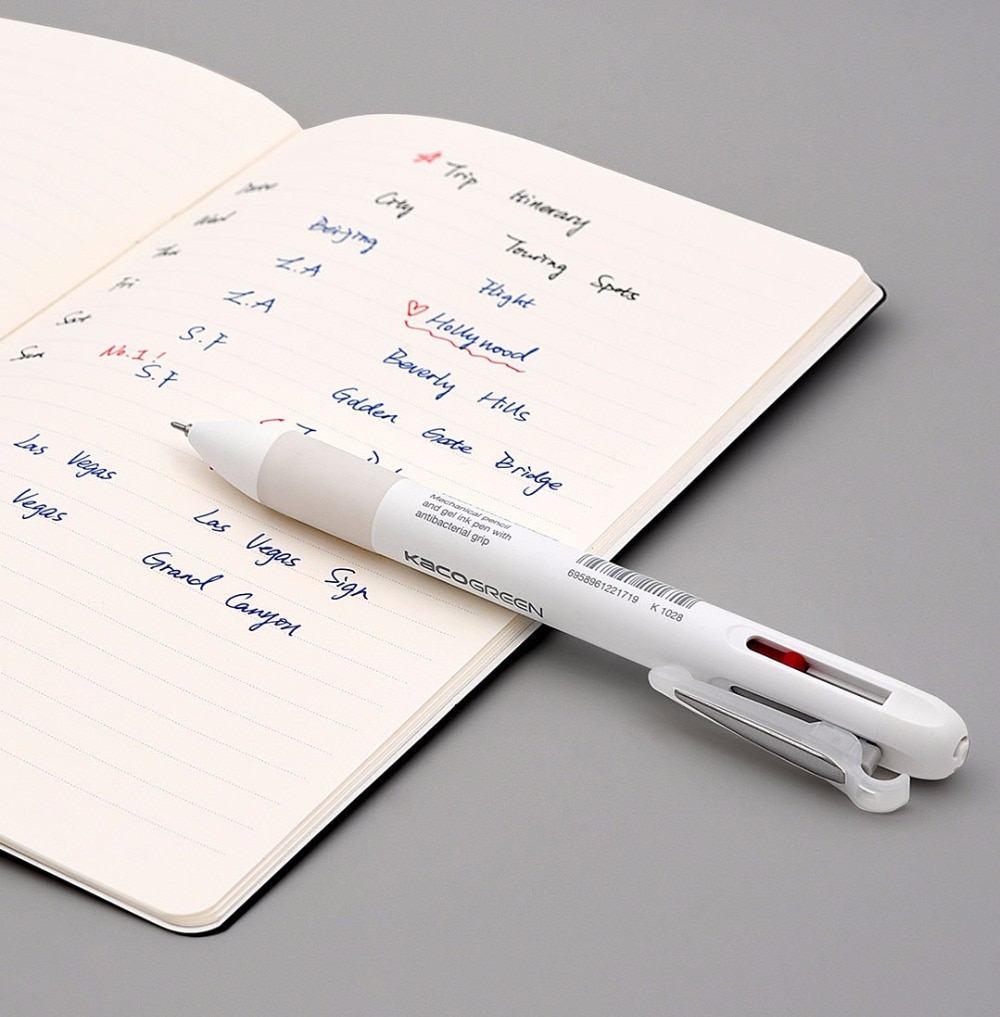 Trip Itinerary
City Touring Spots
Wed Beijing Flight
Thu L.A Hollywood
Fri L.A Beverly Hills
Sat S.F Golden Gate Bridge
No.1!
Sun S.F
Las Vegas Las Vegas Sign
Vegas Grand Canyon
Mechanical pencil
and gel ink pen with
antibacterial grip
KACOGREEN
6958961221719 K 1028